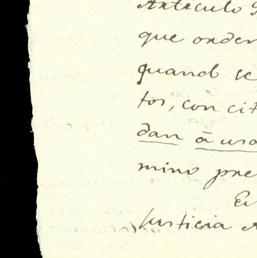 Articulo 9
que orden
quando se
tos, con cit
dan à usa
mino pre
En
Justicia